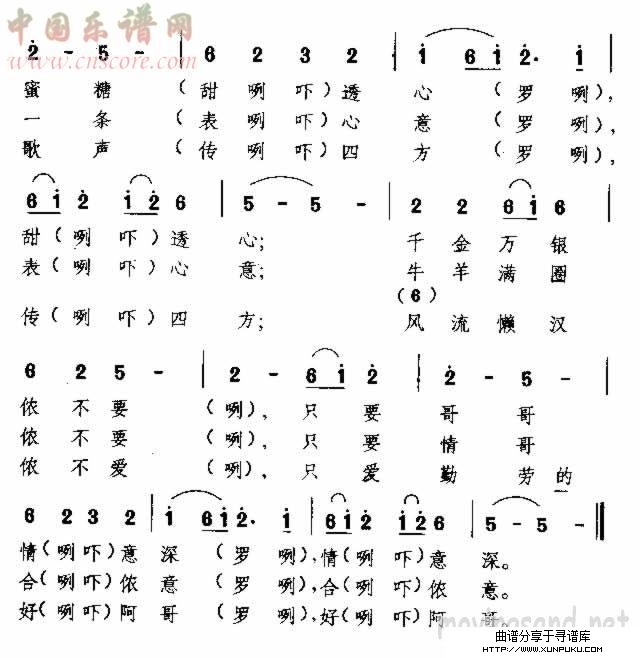 中国乐谱网
www.cnscore.com
2̇ - 5 - | 6 2 3 2 | i̇ 6i̇ 2̇· i̇ |
蜜 糖 （甜 咧 吓）透 心 （罗 咧），
一 条 （表 咧 吓）心 意 （罗 咧），
歌 声 （传 咧 吓）四 方 （罗 咧），
6i̇ 2̇ i̇2̇ 6 | 5 - 5 - | 2 2 6i̇ 6 |
甜（咧 吓）透 心； 千 金 万 银
表（咧 吓）心 意； 牛 羊 满 圈
（6）
传（咧 吓）四 方； 风 流 懒 汉
6 2 5 - | 2 - 6i̇ 2̇ | 2̇ - 5 - |
侬 不 要 （咧）， 只 要 哥 哥
侬 不 要 （咧）， 只 要 情 哥
侬 不 爱 （咧）， 只 爱 勤 劳 的
6 2 3 2 | i̇ 6i̇ 2̇· i̇ | 6i̇ 2̇ i̇2̇ 6 | 5 - 5 - ‖
情（咧 吓）意 深 （罗 咧），情（咧 吓）意 深。
合（咧 吓）侬 意 （罗 咧），合（咧 吓）侬 意。
好（咧 吓）阿 哥 （罗 咧），好（咧 吓）阿 哥。
movingsand.net
曲谱分享于寻谱库
HTTP://WWW.XUNPUKU.COM